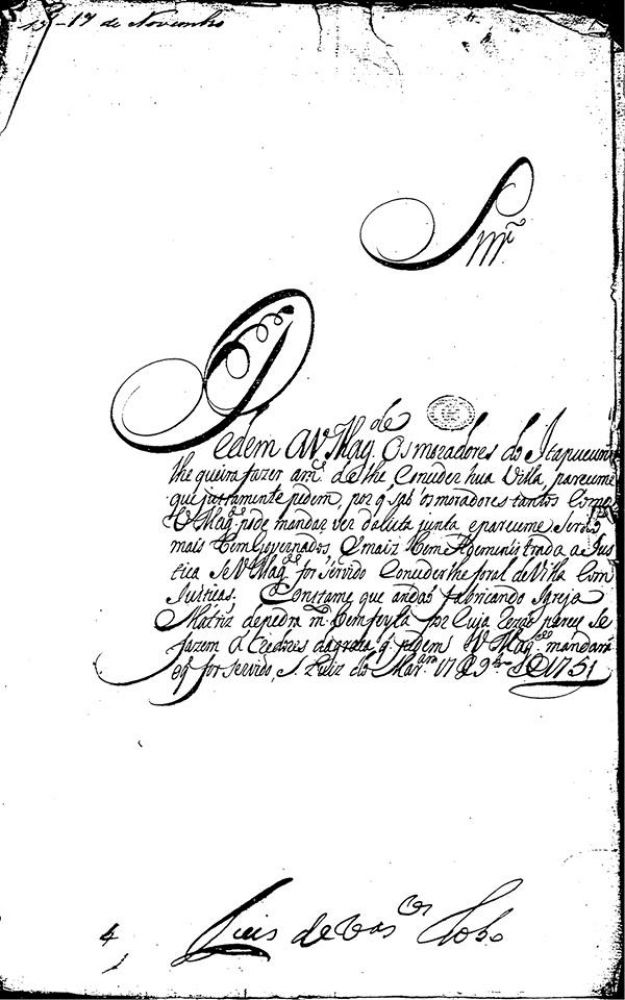 17 de Novembro
Snr.
Pedem a V. Mag.de Os moradores do Itapucuru
lhe queira fazer a m.ce de lhe Conceder hua Villa, pareceme
que justamente pedem, por q̃ saõ os moradores tantos Como
V Mag.de pode mandar ver da lista junta e pareceme seraõ
mais bem Governados, e mais bem Administrada a Jus
tica Se V Mag.de for servido Concederlhe foral de Villa Com
Justicas. Constame que andaõ fabricando Igreja
Matriz de pedra m.to bem feyta por Cuja Rezaõ parece se
fazem a Credores da graça q̃ pedem V Mag.de mandará
o q̃ for servido, S. Luiz do Mar.am 17 de 9bro de 1751
4
Luis de Vas.cos Lobo